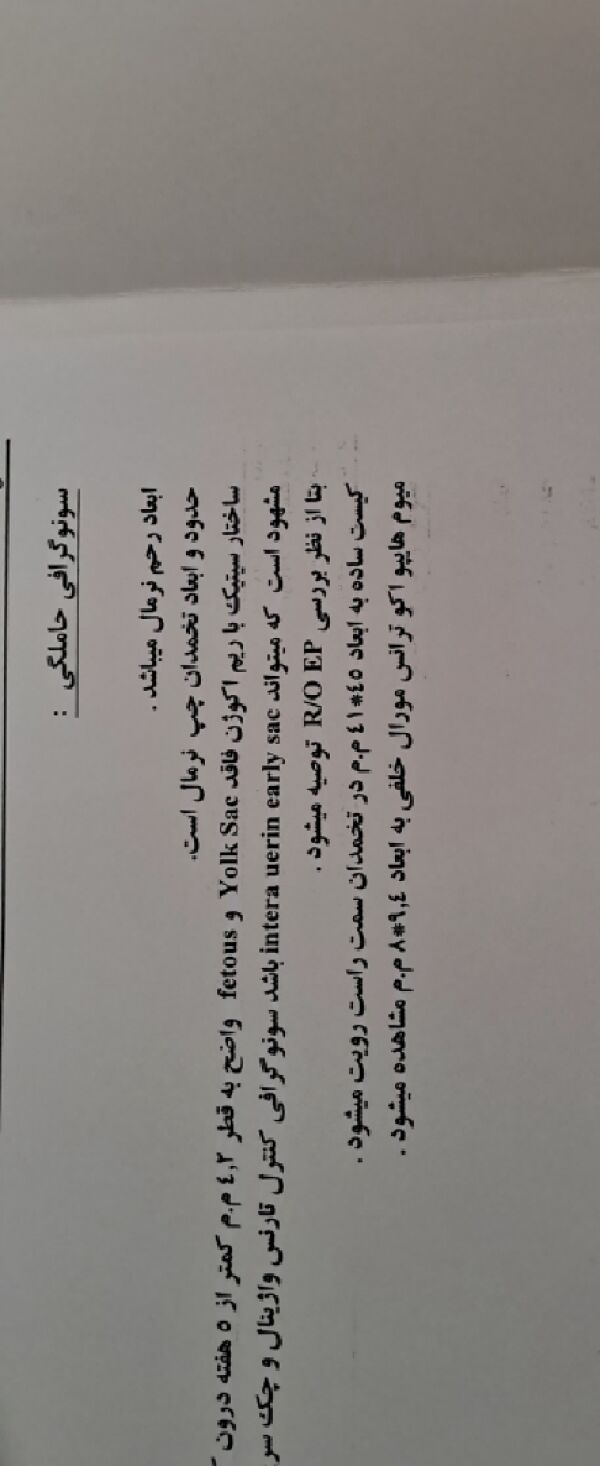 سونوگرافی حاملگی :
ابعاد رحم نرمال میباشد .
حدود و ابعاد تخمدان چپ نرمال است.
ساختار سیتیک با ریم اکوژن فاقد Yolk Sac و fetous واضح به قطر ٤,٢ م.م کمتر از ٥ هفته درون
مشهود است که میتواند intera uerin early sac باشد سونوگرافی کنترل تارنس واژینال و چک سر
بتا از نظر بررسی R/O EP توصیه میشود .
کیست ساده به ابعاد ٤٥*٤١ م.م در تخمدان سمت راست رویت میشود .
میوم هایپو اکو ترانس مورال خلفی به ابعاد ٩,٤*٨ م.م مشاهده میشود .